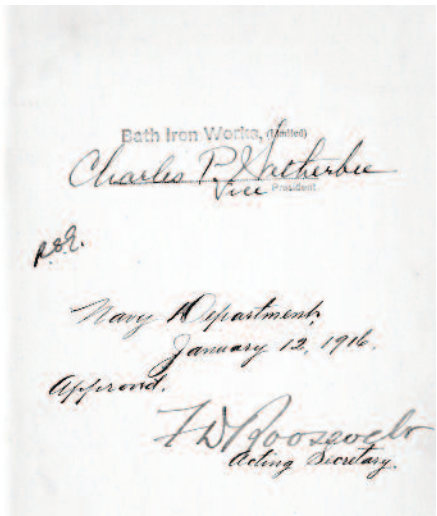 Bath Iron Works, (Limited)
Charles P. Wetherbee
Vice President
Navy Department,
January 12, 1916.
Approved.
F D Roosevelt
Acting Secretary.